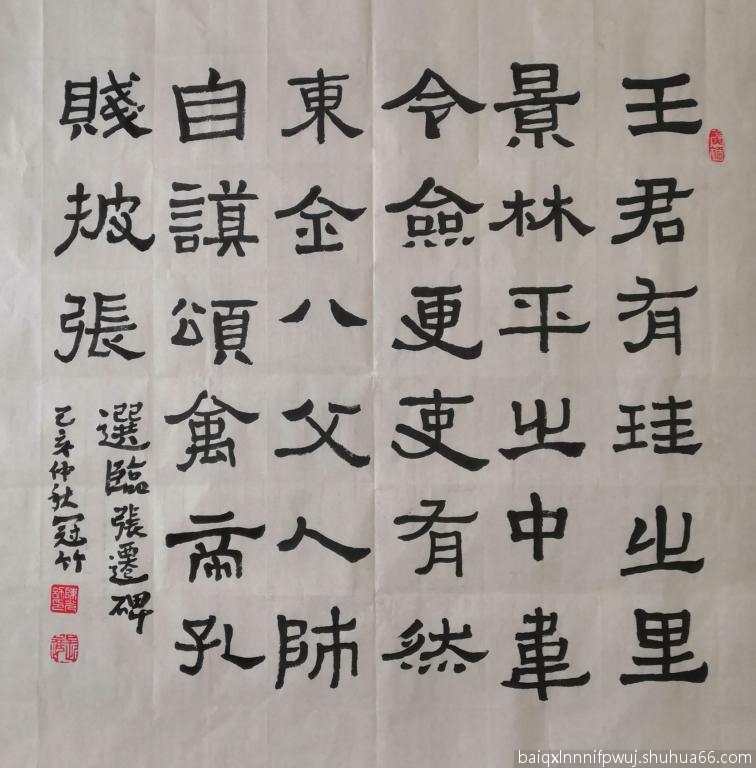 壬君有珪之里
景林平之中韋
令僉更吏有然
東金八父人師
自頌禽帝孔
賤披張
選臨張遷碑
己亥仲秋冠竹
baiqxlnnnifpwuj.shuhua66.com